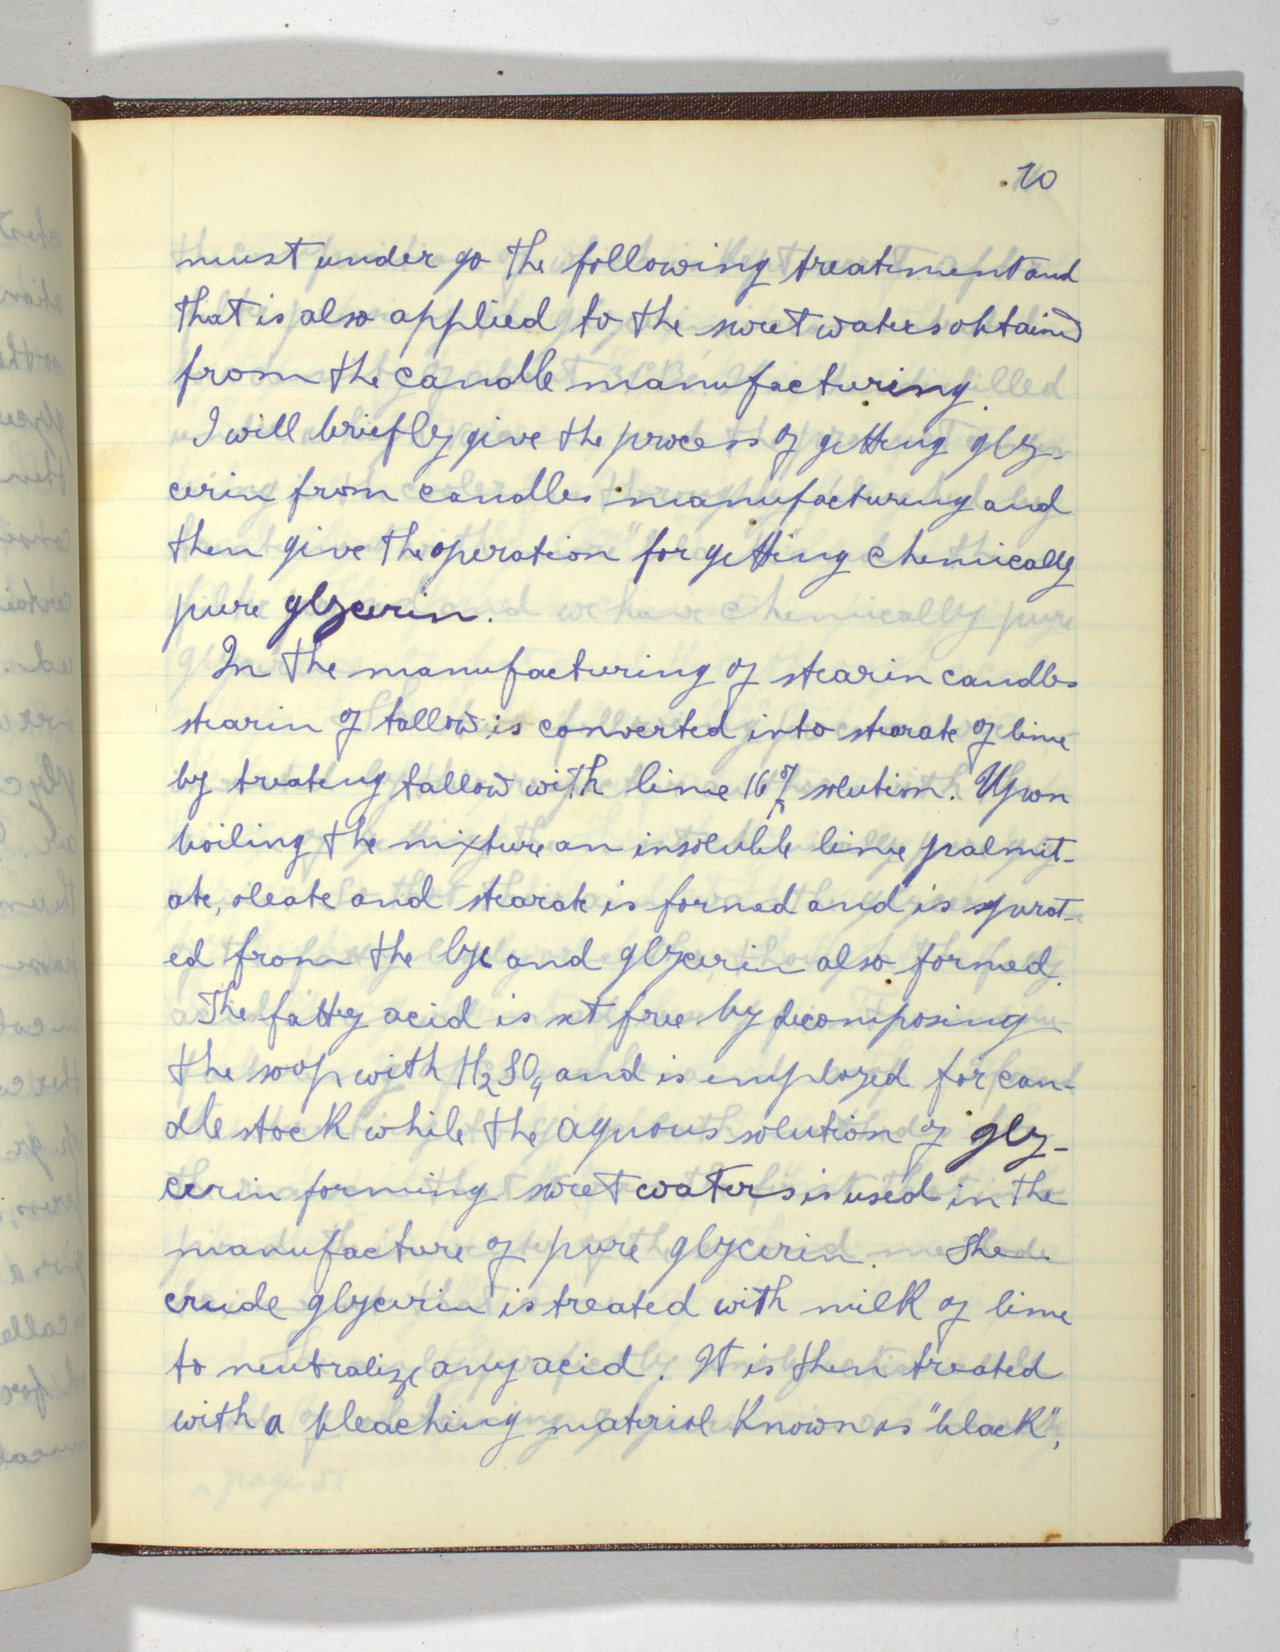 10
must under go the following treatment and
that is also applied to the sweet waters obtained
from the candle manufacturing.
I will briefly give the process of getting gly-
cerin from candles manufacturing and
then give the operation for getting chemically
pure glycerin.
In the manufacturing of stearin candles
stearin of tallow is converted into stearate of lime
by treating tallow with lime 16% solution. Upon
boiling the mixture an insoluble lime palmit-
ate, oleate and stearate is formed and is separat-
ed from the lye and glycerin also formed.
The fatty acid is set free by decomposing
the soap with H2SO4 and is employed for can-
dle stock while the aquous solution of gly-
cerin forming sweet waters is used in the
manufacture of pure glycerin. The
crude glycerin is treated with milk of lime
to neutralize any acid. It is then treated
with a bleaching material known as "black",